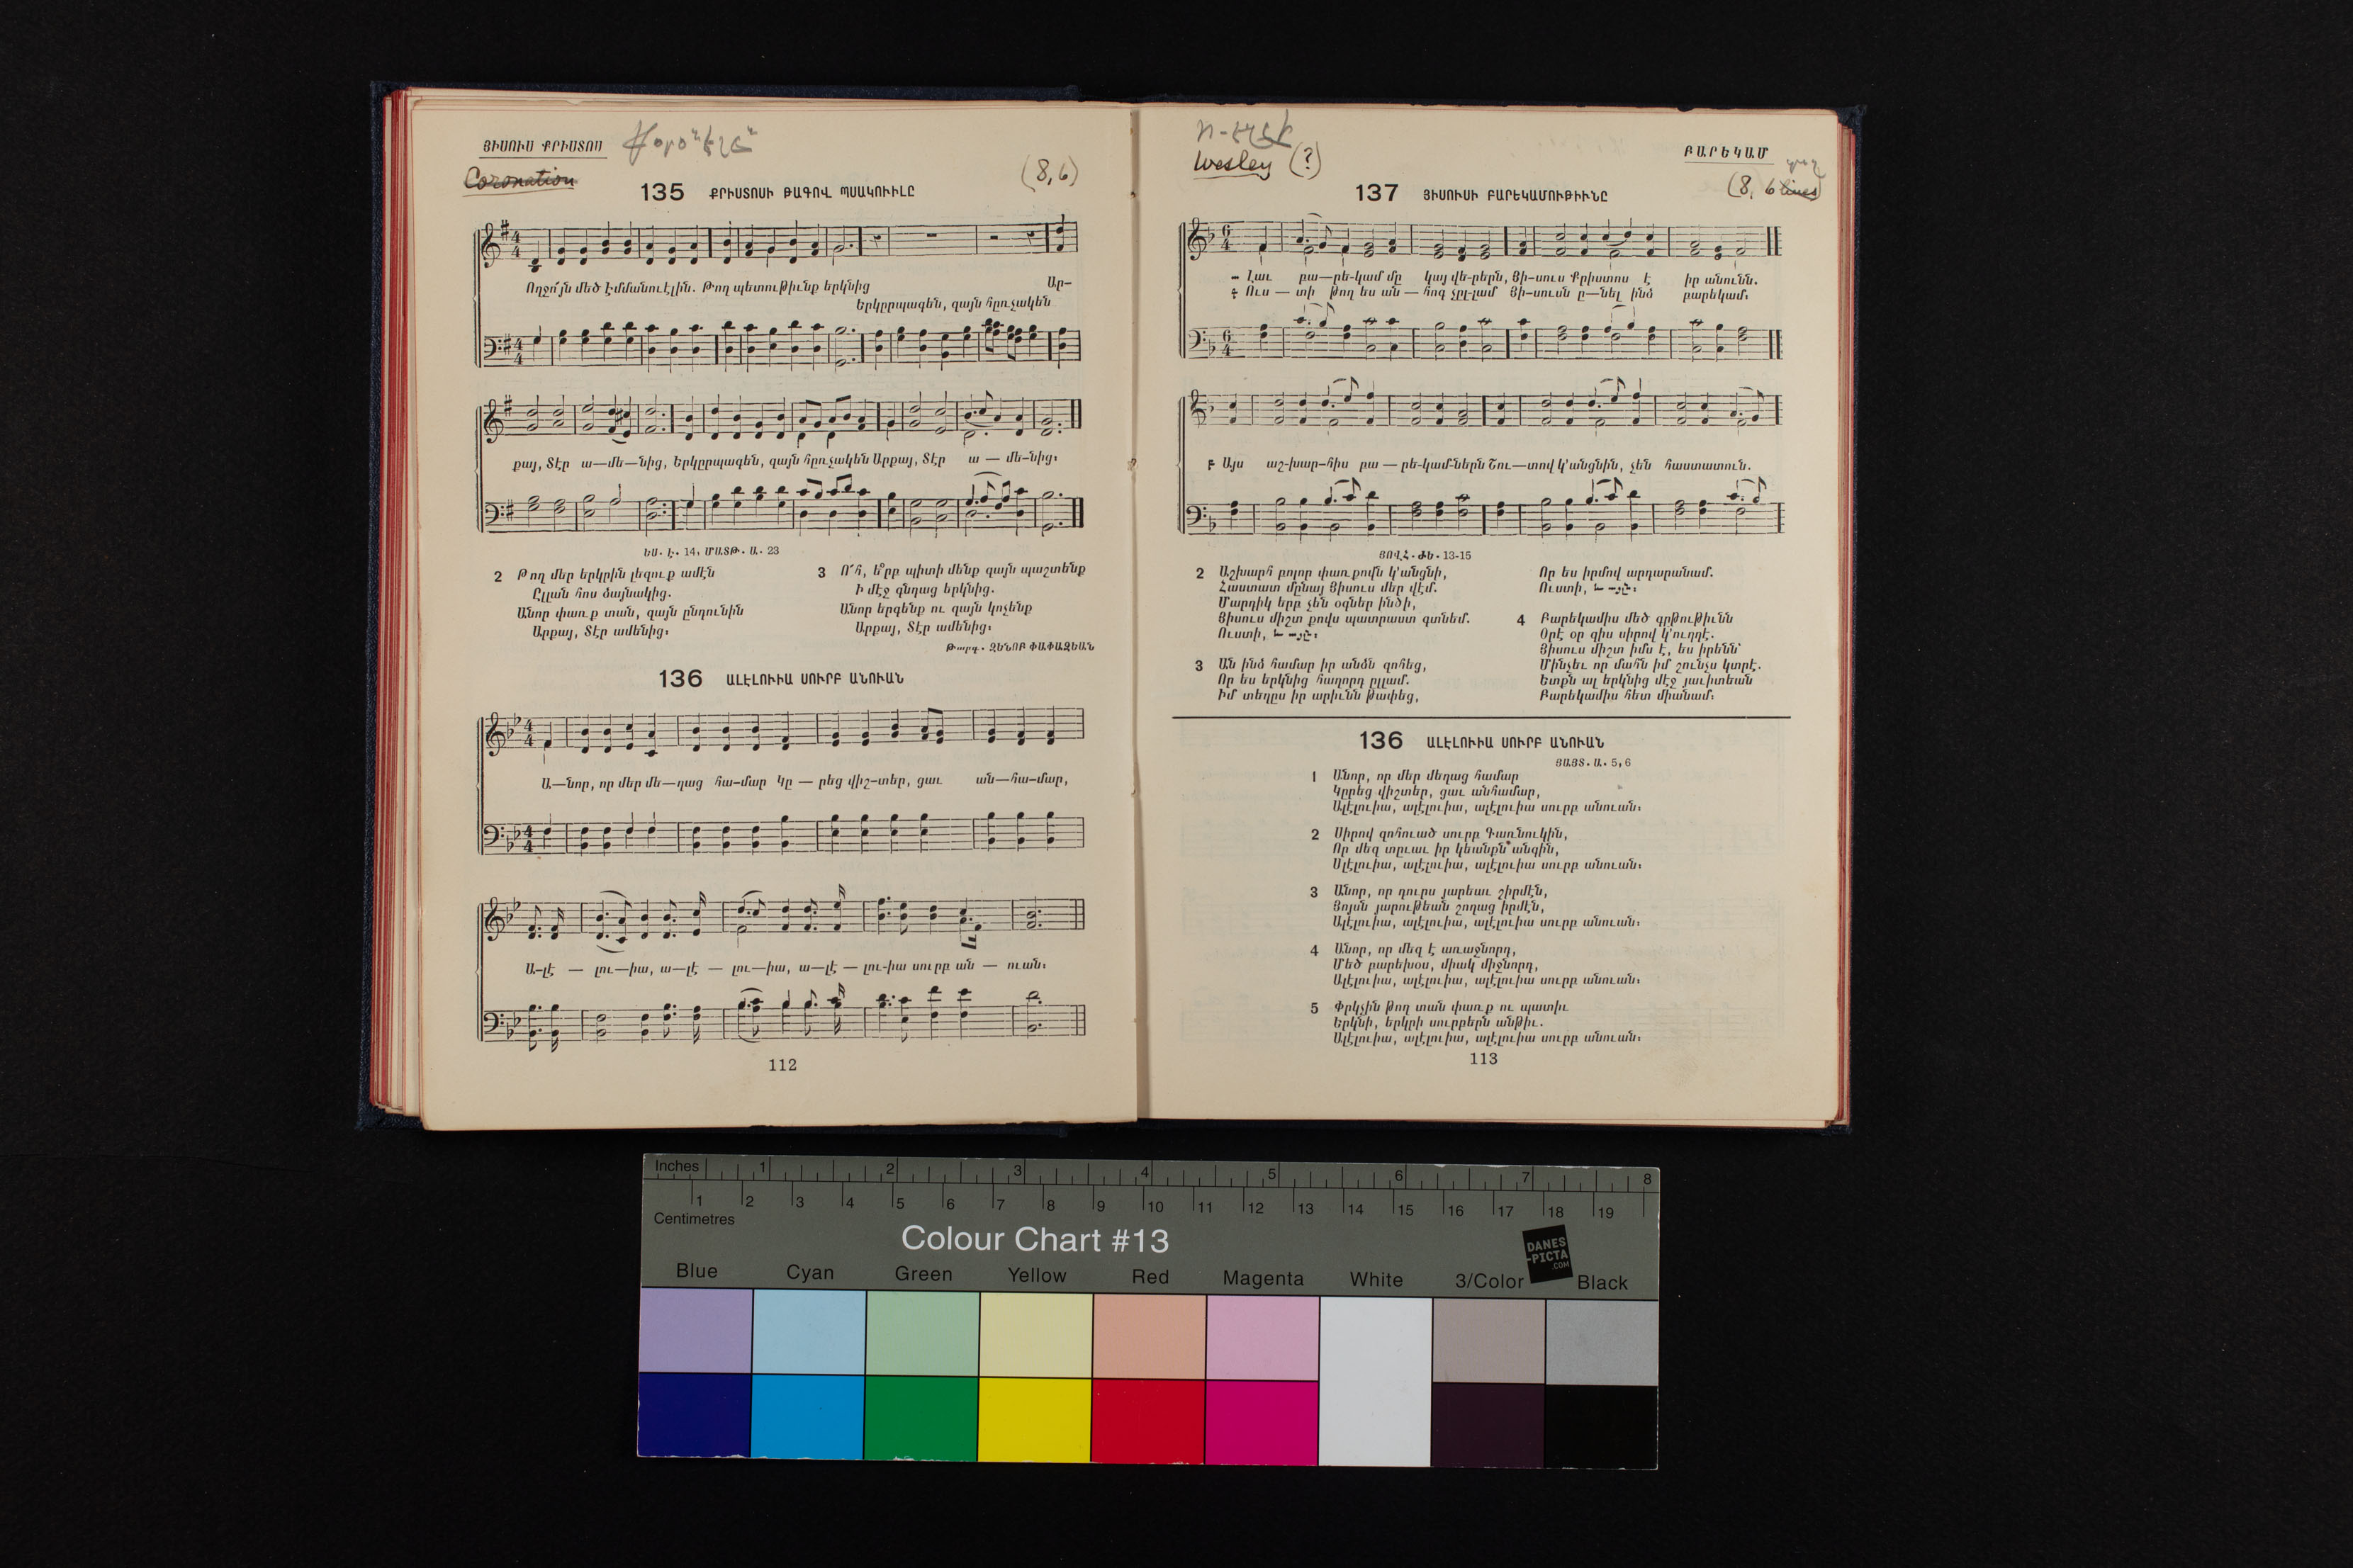 ՅԻՍՈՒՍ ՔՐԻՍՏՈՍ
Coronation
(8,6)
135 ՔՐԻՍՏՈՍԻ ԹԱԳՈՎ ՊՍԱԿՈՒԻԼԸ
Ողջո՜յն մեծ Էմմանուէլին. Թող պետութիւնք երկնից Ար–
Երկրրպագեն, զայն հըռչակեն
քայ, Տէր ա—մե—նից, Երկրրպագեն, զայն հըռչակեն Արքայ, Տէր ա — մե–նից։
ԵՍ. Է. 14, ՄԱՏԹ. Ա. 23
2 Թող մեր երկրին լեզուք ամէն
Ըլլան հոս ձայնակից.
Անոր փառք տան, զայն ընդունին
Արքայ, Տէր ամենից։
3 Ո՜հ, ե՞րբ պիտի մենք զայն պաշտենք
Ի մէջ գնդաց երկնից.
Անոր երգենք ու զայն կոչենք
Արքայ, Տէր ամենից։
Թարգ. ԶԵՆՈԲ ՓԱՓԱԶԵԱՆ
136 ԱԼԷԼՈՒԻԱ ՍՈՒՐԲ ԱՆՈՒԱՆ
Ա—նոր, որ մեր մե—ղաց հա–մար Կը — րեց վիշ–տեր, ցաւ ան—հա–մար,
Ա–լէ — լու—իա, ա—լէ — լու—իա, ա—լէ — լու-իա սուրբ ան — ուան։
112
Wesley (?)
ԲԱՐԵԿԱՄ
(8, 6 lines)
137 ՅԻՍՈՒՍԻ ԲԱՐԵԿԱՄՈՒԹԻՒՆԸ
Լաւ բա—րե-կամ մը կայ վե-րերն, Յի–սուս Քրիստոս է իր անունն.
Ուս — տի թող ես ան — հոգ չըլ-լամ Յի–սուսն ը—նել ինձ բարեկամ։
Այս աշ-խար–հիս բա — րե-կամ-ներն Շու—տով կ'անցնին, չեն հաստատուն.
ՅՈՎՀ. ԺԵ. 13-15
2 Աշխարհ բոլոր փառքովն կ'անցնի,
Հաստատ մընայ Յիսուս մեր վէմ.
Մարդիկ երբ չեն օգներ ինձի,
Յիսուս միշտ քովս պատրաստ գտնեմ.
Ուստի,
3 Ան ինձ համար իր անձն զոհեց,
Որ ես երկնից հաղորդ ըլլամ.
Իմ տեղըս իր արիւնն թափեց,
Որ ես իրմով արդարանամ.
Ուստի,
4 Բարեկամիս մեծ գրթութիւնն
Օրէ օր զիս սիրով կ'ուղղէ.
Յիսուս միշտ իմս է, ես իրենն՝
Մինչեւ որ մահն իմ շունչս կտրէ.
Ետքն ալ երկնից մէջ յաւիտեան
Բարեկամիս հետ միանամ։
136 ԱԼԷԼՈՒԻԱ ՍՈՒՐԲ ԱՆՈՒԱՆ
ՅԱՅՏ. Ա. 5, 6
1 Անոր, որ մեր մեղաց համար
Կըրեց վիշտեր, ցաւ անհամար,
Ալէլուիա, ալէլուիա, ալէլուիա սուրբ անուան։
2 Սիրով զոհուած սուրբ Գառնուկին,
Որ մեզ տըւաւ իր կեանքն՝ անգին,
Ալէլուիա, ալէլուիա, ալէլուիա սուրբ անուան։
3 Անոր, որ դուրս յարեաւ շիրմէն,
Յոյսն յարութեան շողաց իրմէն,
Ալէլուիա, ալէլուիա, ալէլուիա սուրբ անուան։
4 Անոր, որ մեզ է առաջնորդ,
Մեծ բարեխօս, միակ միջնորդ,
Ալէլուիա, ալէլուիա, ալէլուիա սուրբ անուան։
5 Փրկչին թող տան փառք ու պատիւ
Երկնի, երկրի սուրբերն անթիւ.
Ալէլուիա, ալէլուիա, ալէլուիա սուրբ անուան։
113
Inches 1 2 3 4 5 6 7 8
1 2 3 4 5 6 7 8 9 10 11 12 13 14 15 16 17 18 19
Centimetres
Colour Chart #13
DANES
-PICTA
.COM
Blue Cyan Green Yellow Red Magenta White 3/Color Black